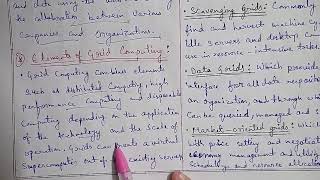 and data using the
the collaboration between various
Companies and Organizations.
Elements of Grid Computing:
• Grid Computing combines elements
such as distributed Computing, high
performance Computing and disposable
Computing depending on the application
of the technology and the scale of
operation. Grids can create a virtual
Supercomputer out of existing servers
• Scavenging Grids: Commonly
find and harvest machine cy
idle Servers and desktop Com
use in resource-intensive tasks.
• Data Grids: Which provides
interface for all data reposito
an organization, and through which
Can be queried, managed and s
• Market-oriented grids: which
with price setting and negotiat
economy management and utility
Scheduling and resource allocation